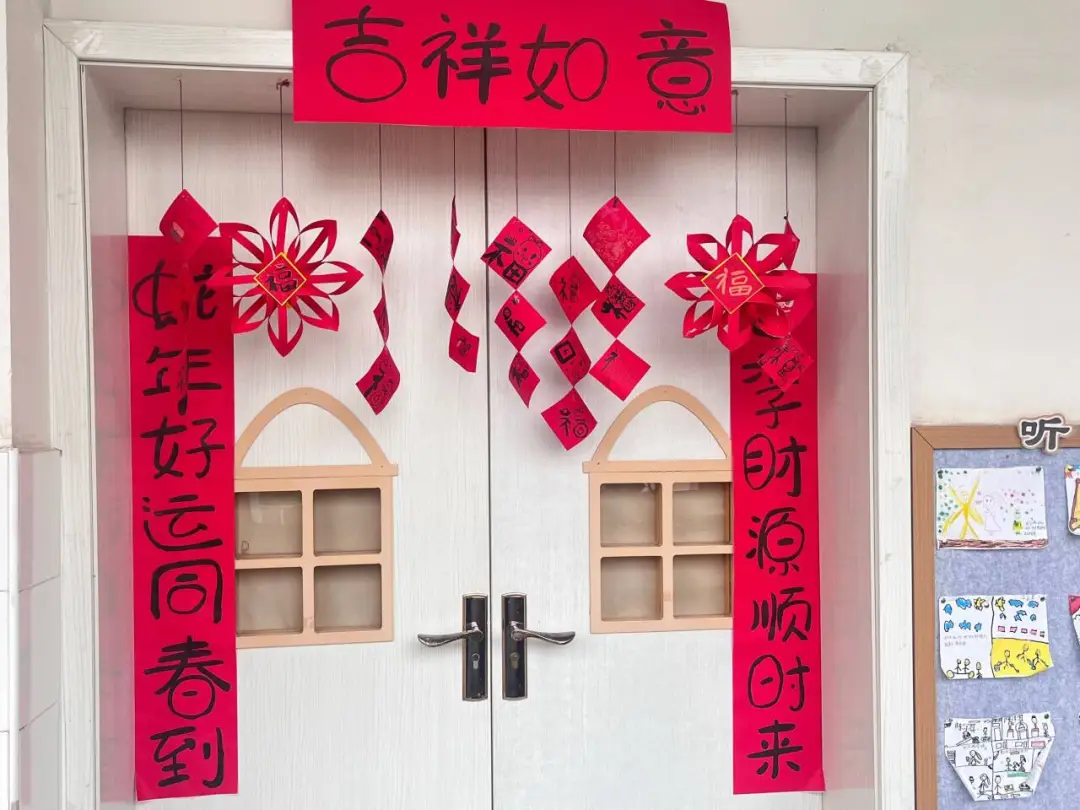 吉祥如意
蛇年好运同春到
字财源顺时来
福
福
福
福
福
听